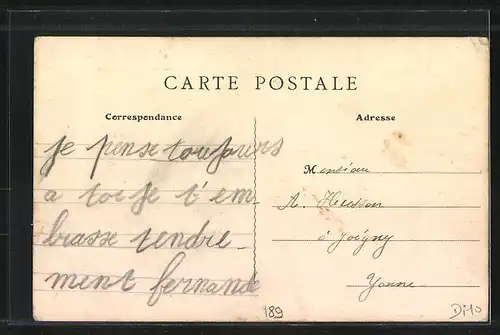 CARTE POSTALE
Correspondance
Adresse
je pense toujours
a toi je t'em-
brasse tendre-
ment fernande
Monsieur
A. Husson
à Joigny
Yonne
189